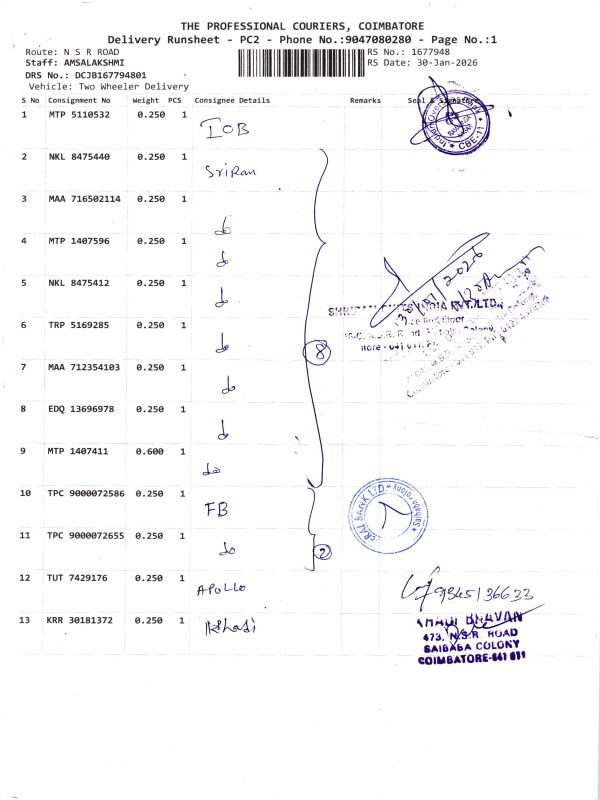 THE PROFESSIONAL COURIERS, COIMBATORE
Delivery Runsheet - PC2 - Phone No.:9047080280 - Page No.:1
Route: N S R ROAD
RS No.: 1677948
Staff: AMSALAKSHMI
RS Date: 30-Jan-2026
DRS No.: DCJB167794801
Vehicle: Two Wheeler Delivery
S No Consignment No Weight PCS Consignee Details Remarks Seal & Signature
1 MTP 5110532 0.250 1 IOB
CBE-11
2 NKL 8475440 0.250 1 Sriram
3 MAA 716502114 0.250 1 do
4 MTP 1407596 0.250 1 do
5 NKL 8475412 0.250 1 do
INDIA PVT. LTD.,
6 TRP 5169285 0.250 1 do
8
7 MAA 712354103 0.250 1 do
8 EDQ 13696978 0.250 1 do
9 MTP 1407411 0.600 1 do
10 TPC 9000072586 0.250 1 FB
BANK LTD.
11 TPC 9000072655 0.250 1 do
2
12 TUT 7429176 0.250 1 APOLLO
9345136633
13 KRR 30181372 0.250 1 Khadi
KHADI BHAVAN
473, N.S.R ROAD
SAIBABA COLONY
COIMBATORE-641 011